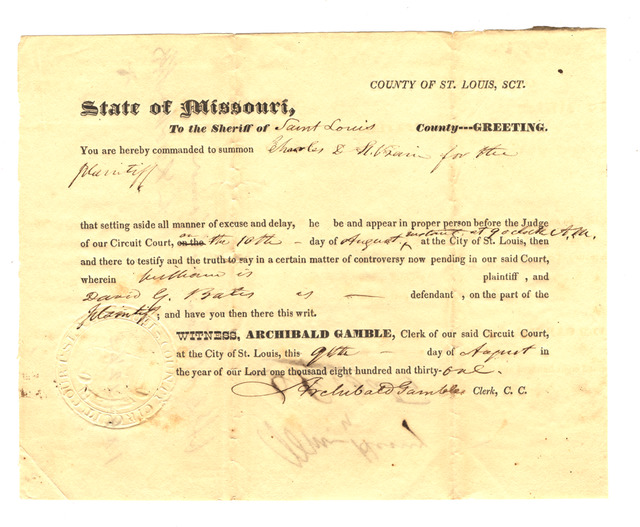 COUNTY OF ST. LOUIS, SCT.
State of Missouri,
To the Sheriff of Saint Louis County---GREETING.
You are hereby commanded to summon Charles D St. Vrain for the
plaintiff
that setting aside all manner of excuse and delay, he be and appear in proper person before the Judge
of our Circuit Court, on the the 10th - day of August, instant at 9 oclock A.M. at the City of St. Louis, then
and there to testify and the truth to say in a certain matter of controversy now pending in our said Court,
wherein William is plaintiff , and
David G. Bates is — defendant , on the part of the
plaintiff; and have you then there this writ.
WITNESS, ARCHIBALD GAMBLE, Clerk of our said Circuit Court,
at the City of St. Louis, this 9th - day of August in
the year of our Lord one thousand eight hundred and thirty-one.
Archibald Gamble Clerk, C. C.